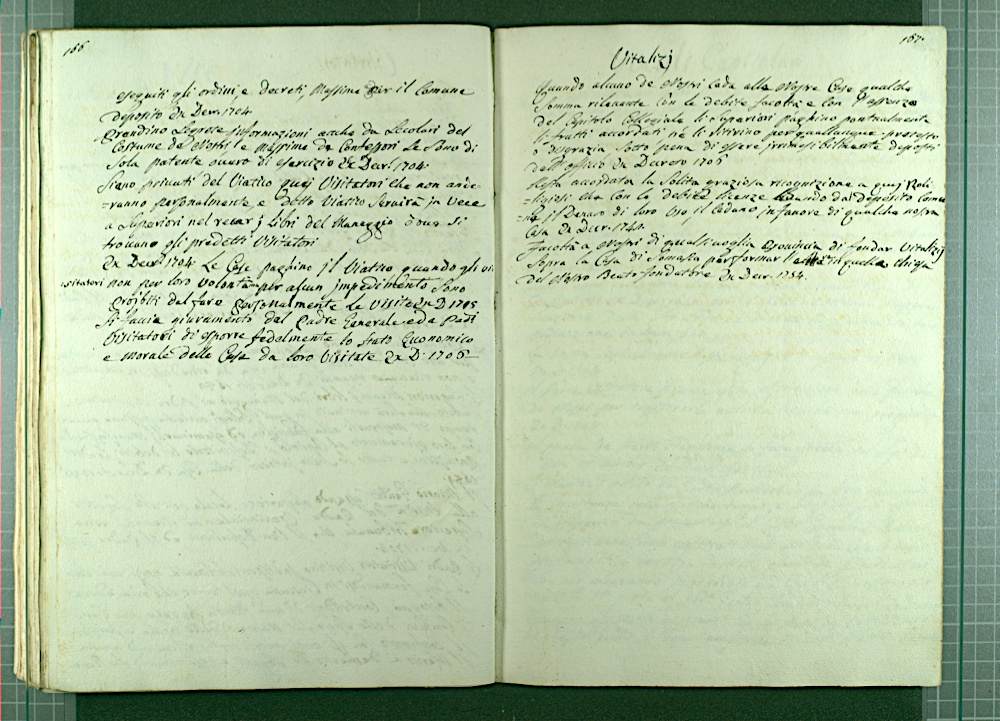 166
eseguiti gli ordini e decreti, Massime per il Comune
deposito Ex Decr. 1704
Prendino segrete informazioni anche da secolari del
Costume de Nostri e massime da Confessori se sono di
Sola patente ovvero di esercizio Ex Decr. 1704.
Siano privati del Viatico quej Visitatori che non ande=
=ranno personalmente e detto Viatico servirà in vece
a Superiori nel recar j Libri del Maneggio dove si
trovano gli predetti Visitatori
Ex Decr. 1704 Le Case paghino jl Viatico quando gli vi
=sitatori non per loro volontà per alcun impedimento sono
proibiti dal fare personalmente le Visite Ex D 1705
Si faccia giuramento dal Padre Generale e da Padi
Visitatori di esporre fedelmente lo stato Economico
e Morale delle Case da loro Visitate Ex D. 1706
167.
Vitalizj
Quando alcuno de Nostri ceda alle Nostre Case qualche
Somma rilevante con le debite facoltà e con l'assenzo
del Capitolo Collegiale li Superiori paghino puntualmente
j frutti accordati nè li privino per qualunque pretesto
o disgrazia sotto pena di essere jrremissibilmente deposti
dell'officio Ex Decreto 1706
Resta accordata la solita graziosa ricognizione a quej Reli
=giosi che con le debite licenze levando dal deposito Comu
=ne jl Denaro di loro Uso il cedano in favore di qualche nostra
Casa Ex Decr. 1741.
Facoltà a Nostri di qualsivoglia Provincia di fondar Vitalizj
Sopra la Casa di Somasca per formar l' in quella Chiesa
del Nostro Beato fondatore Ex Decr. 1754.